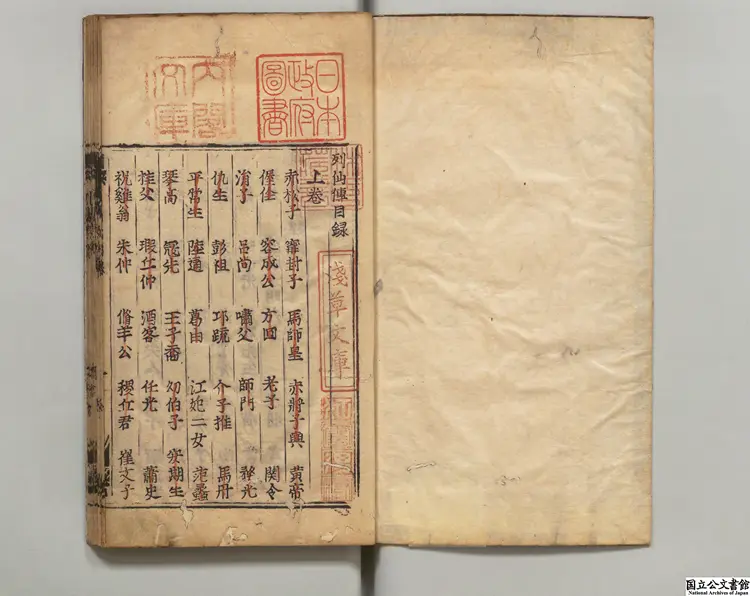 日本
政府
圖書
內閣
文庫
列仙傳目録
淺草文庫
上卷
赤松子 甯封子 馬師皇 赤將子輿 黃帝
偓佺 容成公 方回 老子 關令
涓子 呂尚 嘯父 師門 務光
仇生 彭祖 邛疏 介子推 馬丹
平常生 陸通 葛由 江妃二女 范蠡
琴高 寇先 王子喬 幼伯子 安期生
桂父 瑕丘仲 酒客 任光 蕭史
祝雞翁 朱仲 脩羊公 稷丘君 崔文子
国立公文書館
National Archives of Japan